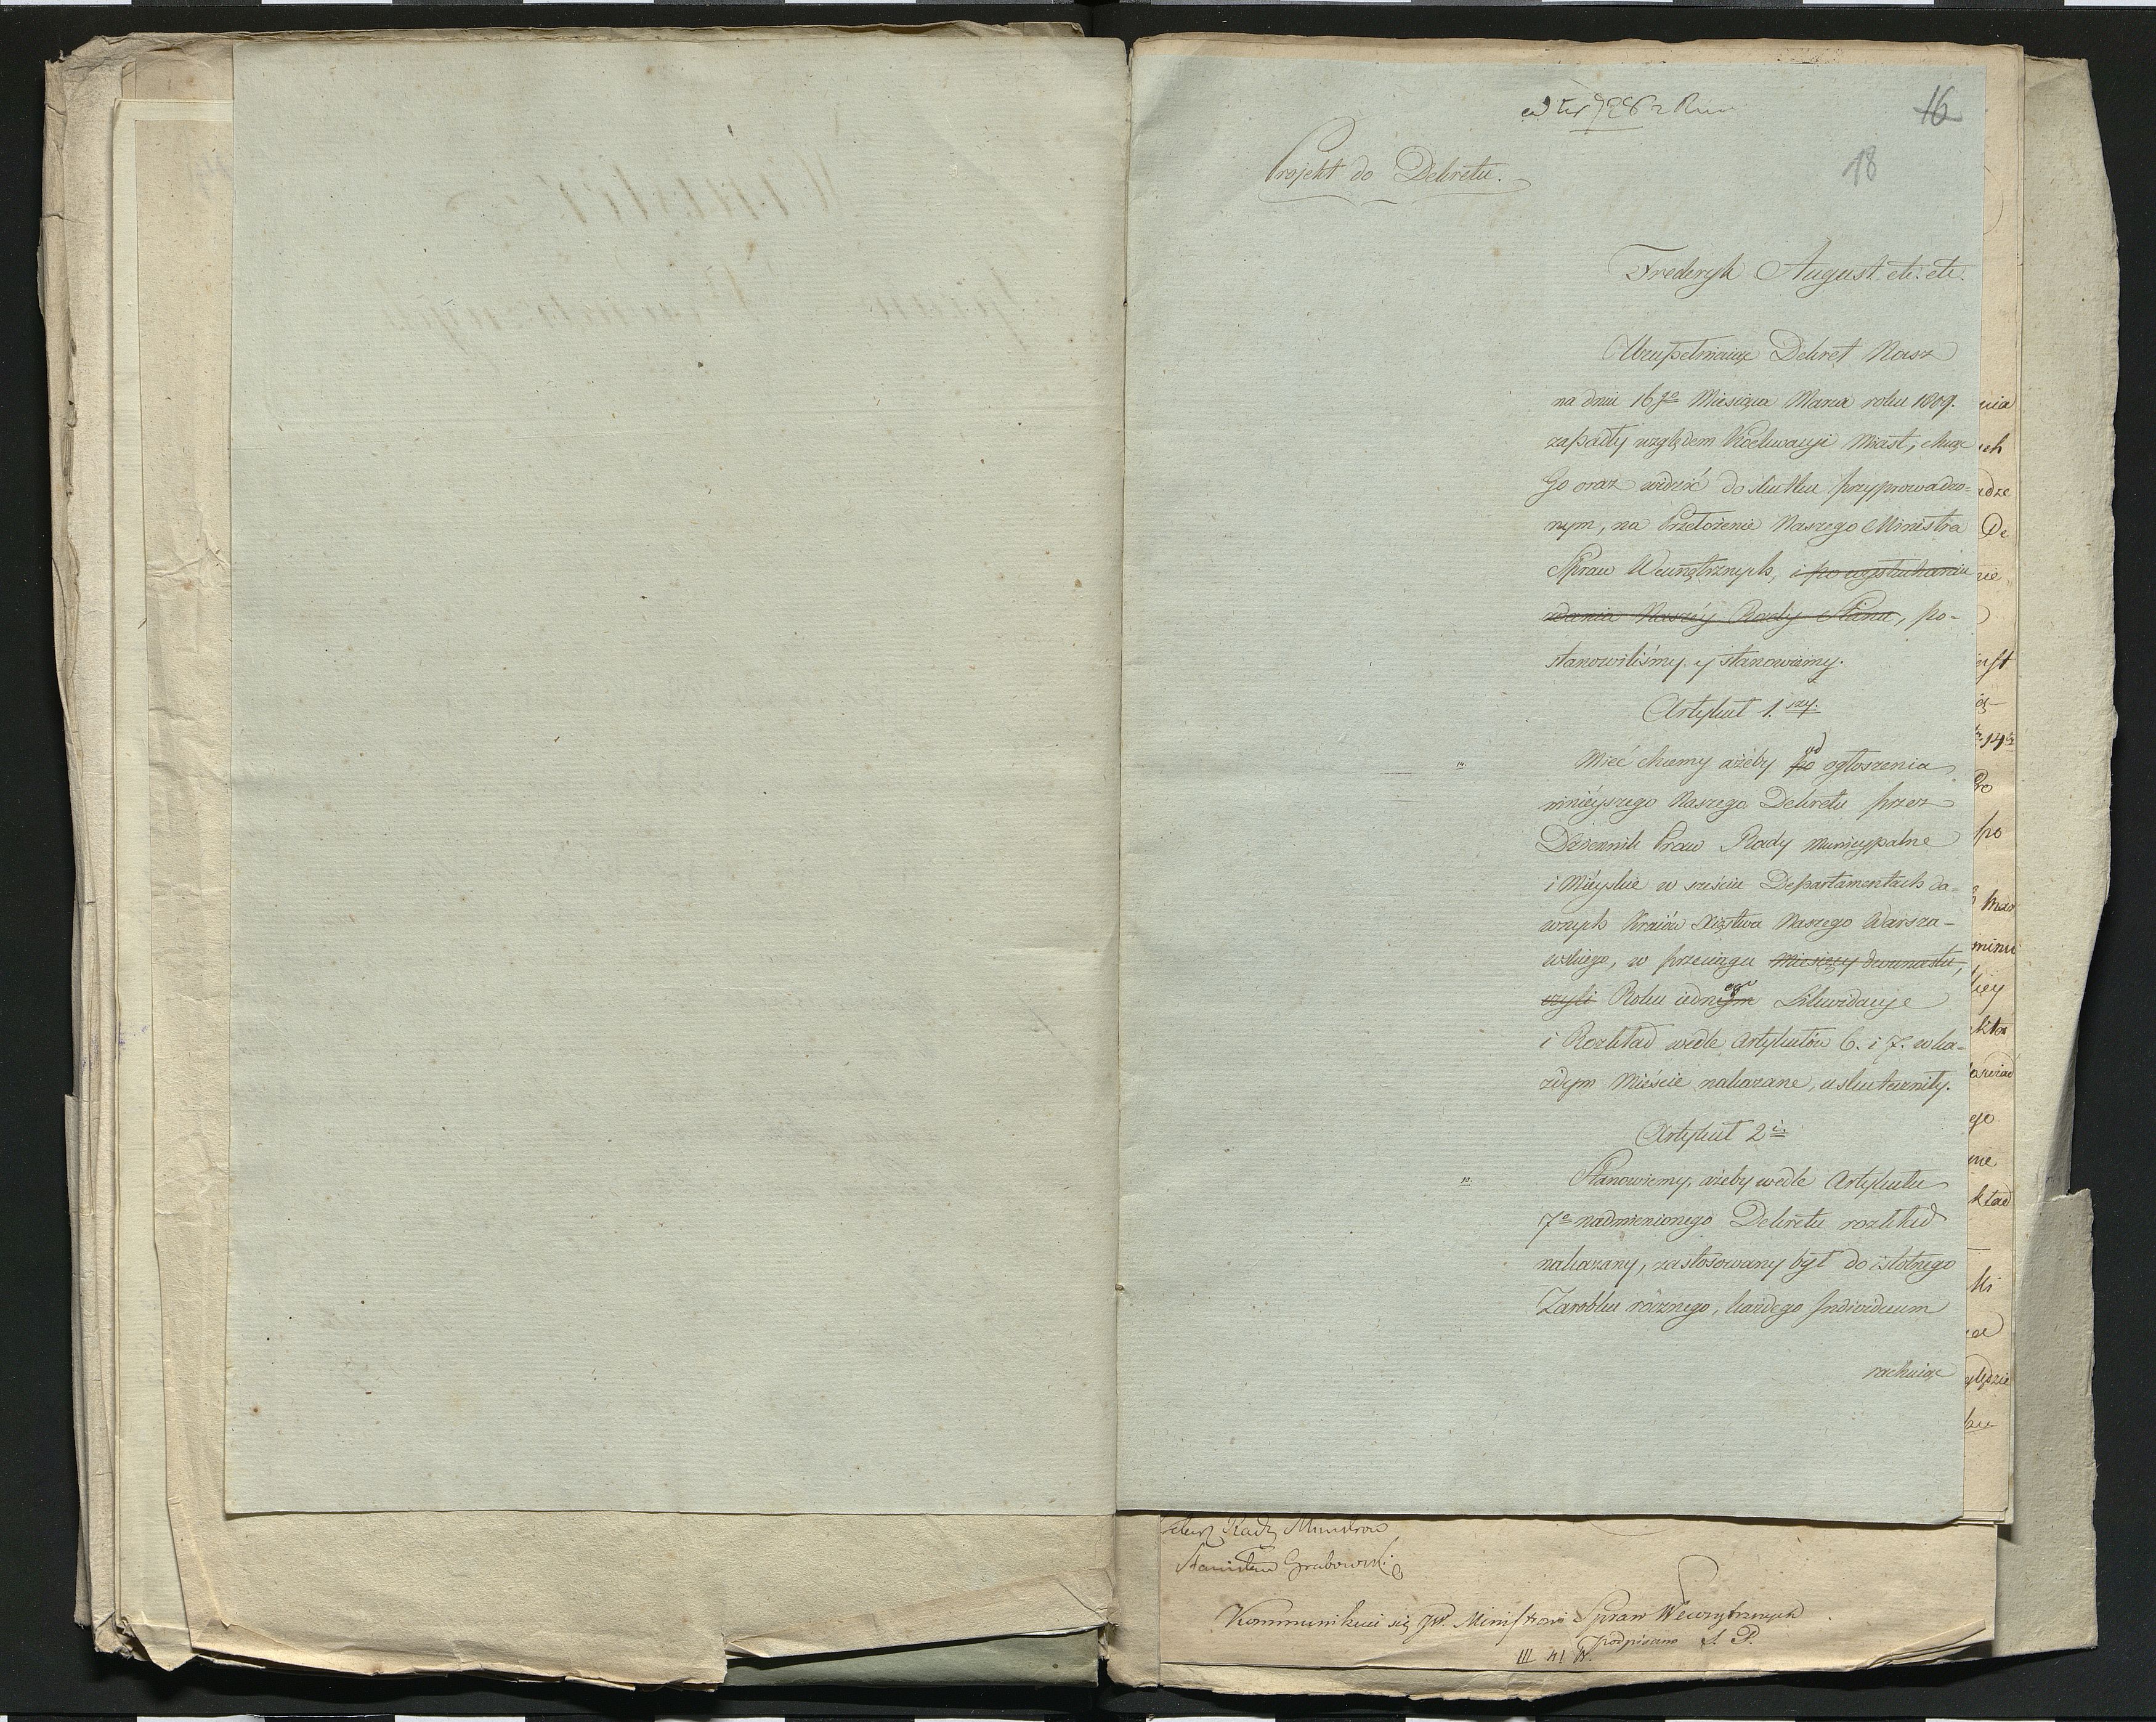 16
18
Projekt do Dekretu.
Frederyk August etc: etc.
Uzupełniaiąc Dekret Nasz
na dniu 16go Miesiąca Marca roku 1809.
zapadły względem Likwidacyi Miast, chcąc
go oraz widzieć do skutku przyprowadzo-
nym, na Przełożenie Naszego Ministra
Spraw Wewnętrznych, i po wysłuchaniu
zdania Naszéy Rady Stanu, po-
stanowiliśmy y stanowiemy.
Artykuł 1. szy.
Mieć chcemy ażeby po od ogłoszenia
ninieyszego Naszego Dekretu przez
Dziennik Praw Rady Municypalne
i Mieyskie w sześciu Departamentach da-
wnych Kraiów Xięstwa Naszego Warsza-
wskiego, w przeciągu Miesięcy dwunastu,
czyli Roku iednym ego Likwidacye
i Rozkład wedle Artykułów 6. i 7. w ka-
żdym Mieście nakazane, uskuteczniły.
Artykuł 2i.
Stanowiemy, ażeby wedle Artykułu
7o nadmienionego Dekretu rozkład
nakazany, zastosowany był do istotnego
Zarobku rocznego, każdego Individuum
rachuiąc
Rady Ministrów
Stanisław Grabowski
Kommunikuie się JW. Ministrowi Spraw Wewnętrznych
podpisano S. P.